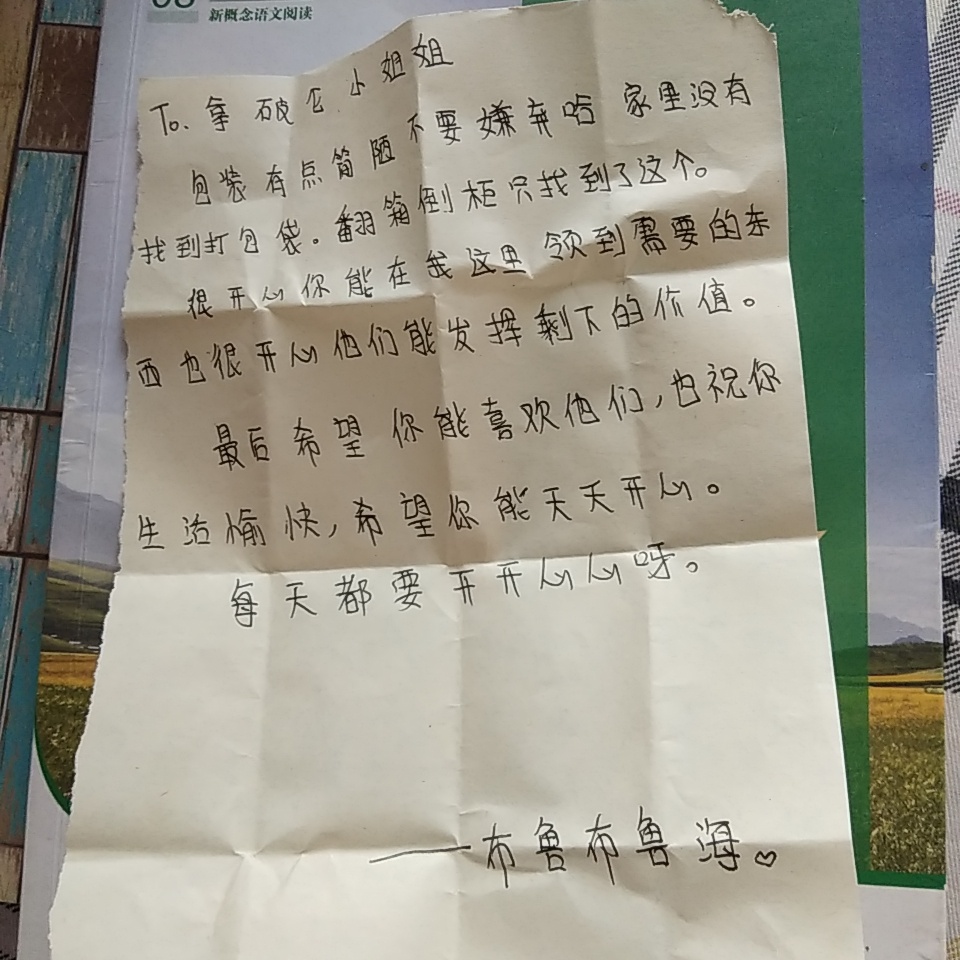 新概念语文阅读
To. 拿破仑小姐姐
包装有点简陋不要嫌弃哈 家里没有
找到打包袋。翻箱倒柜只找到了这个。
很开心你能在我这里领到需要的东
西也很开心他们能发挥剩下的价值。
最后希望你能喜欢他们,也祝你
生活愉快,希望你能天天开心。
每天都要开开心心呀。
——布鲁布鲁海♡